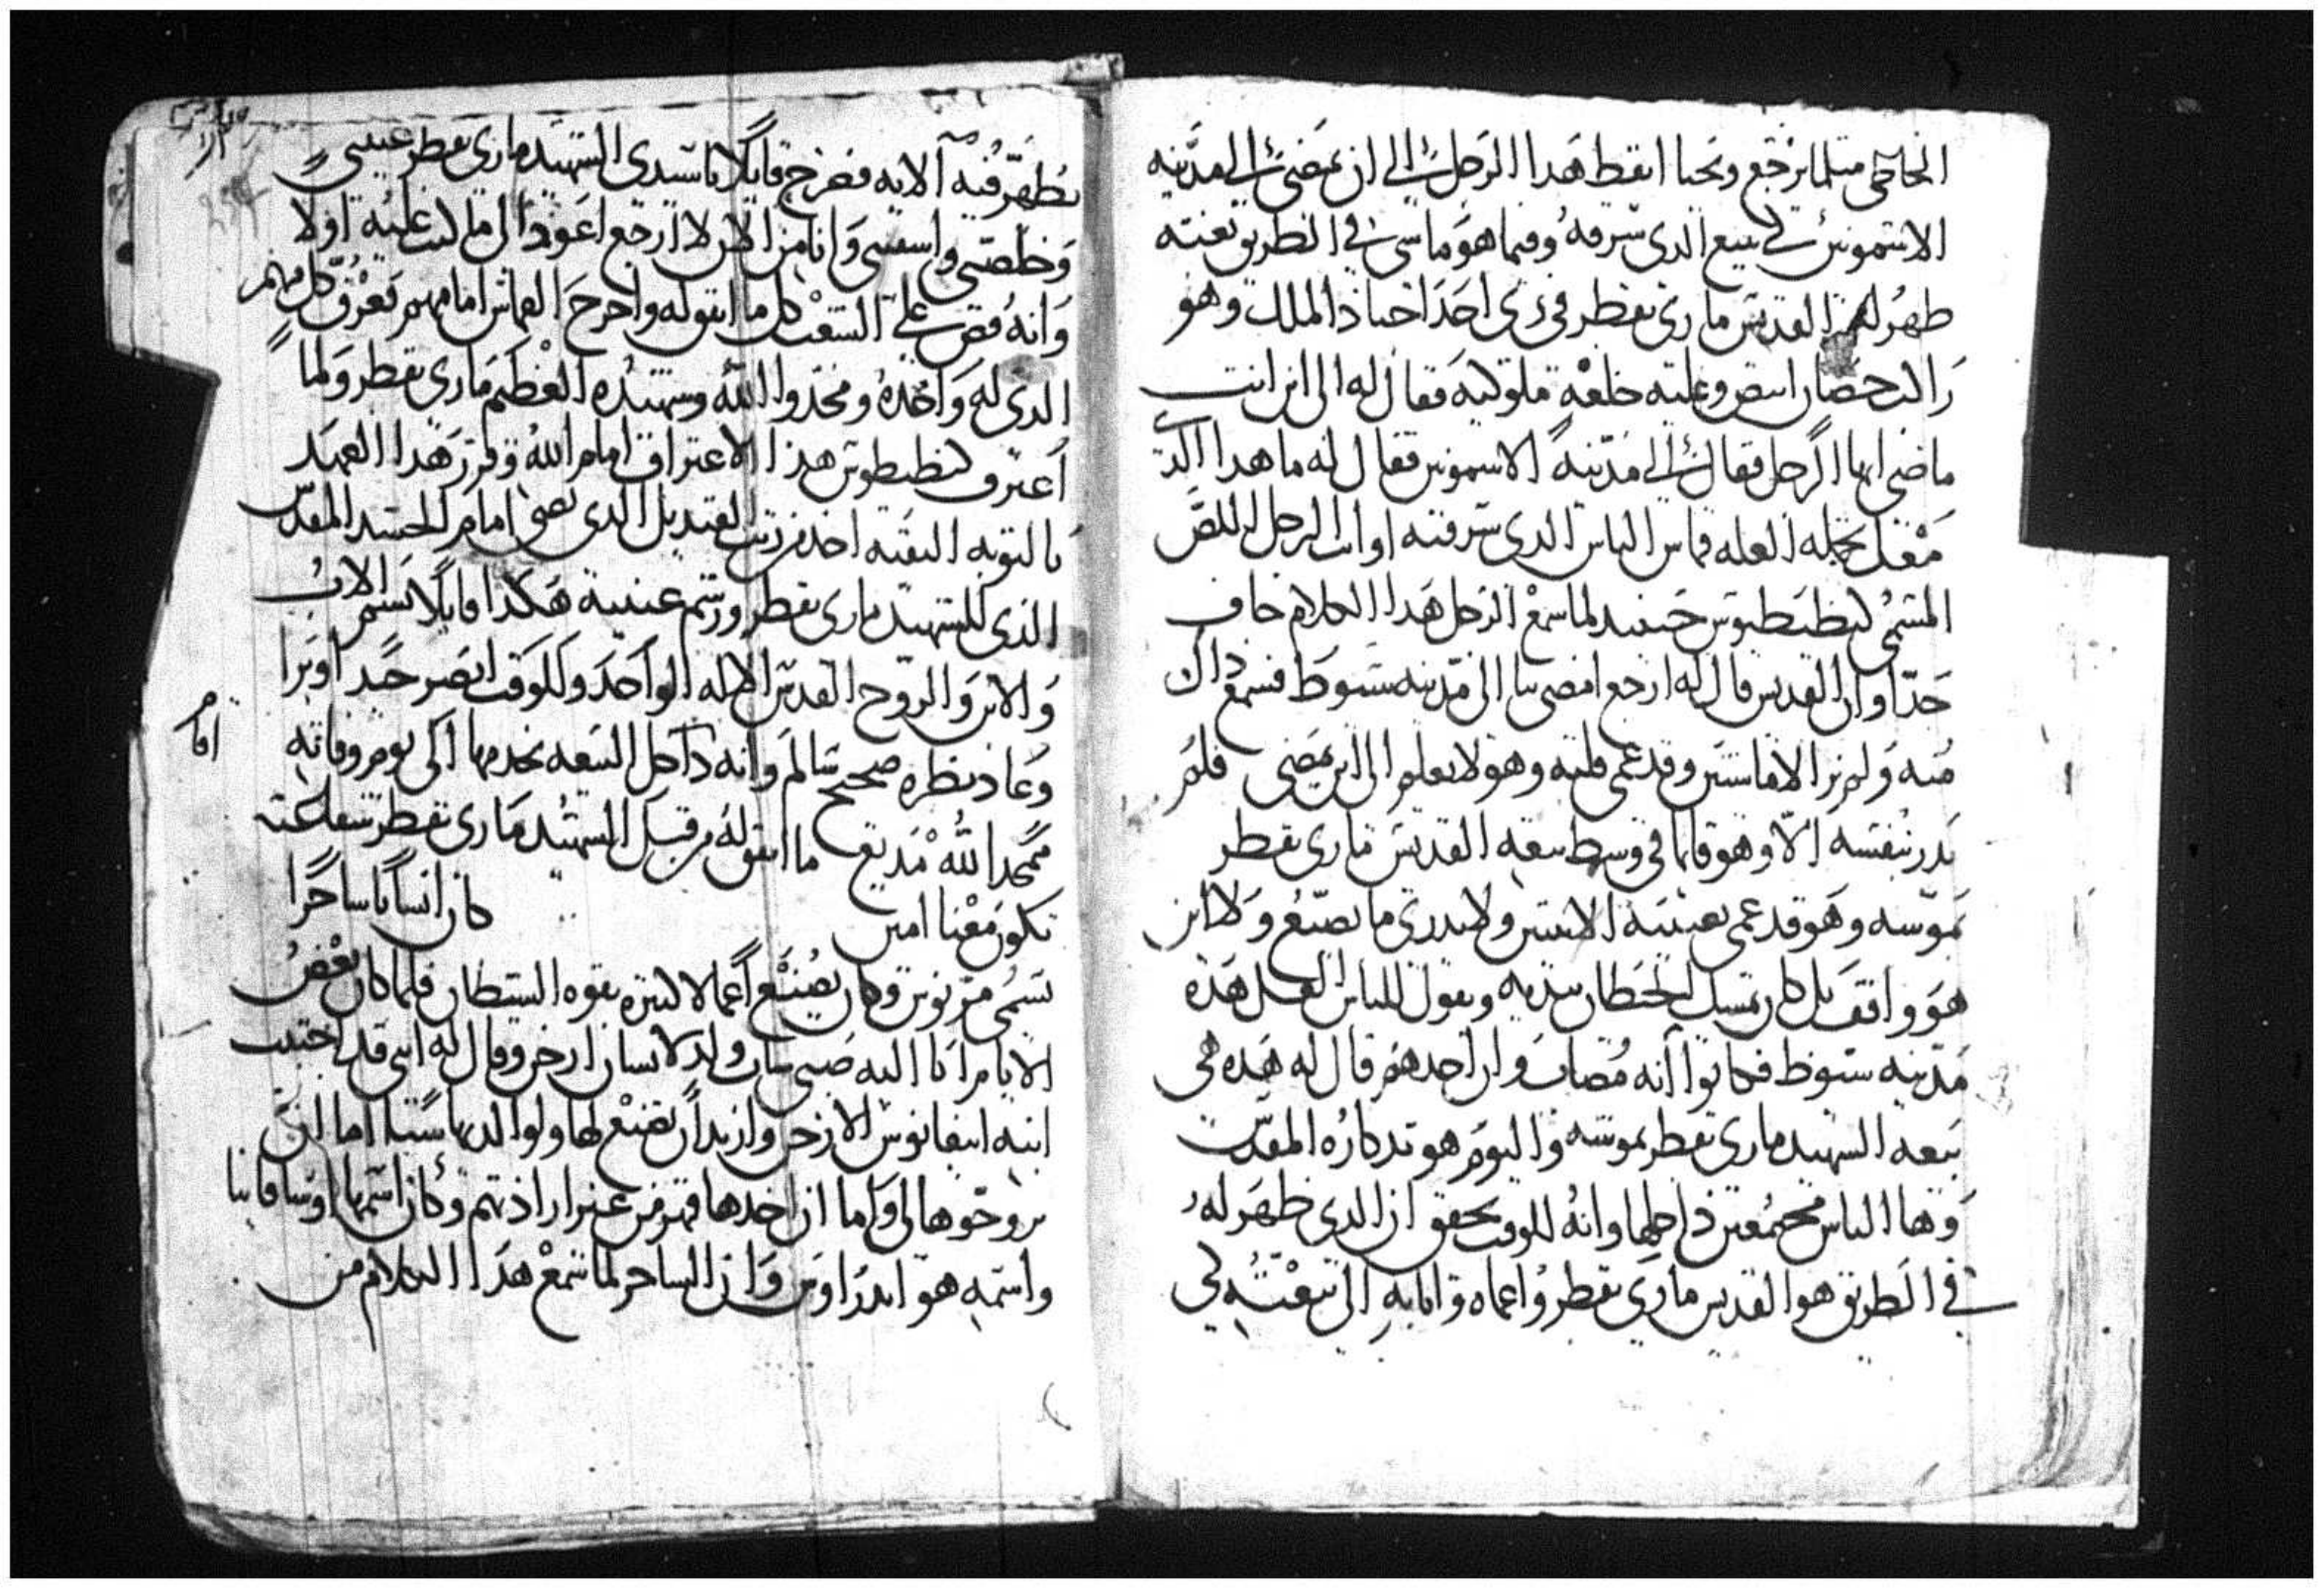 الخاطى متلما يرجع ويحيا انقط هدا الرجل الى ان يمضى الى مدينه
الاشمونين لى يبيع الدى سرقه وفيما هو ماشى فى الطريق بغته
ظهر له القديس مارى بقطر فى زى احد اجناد الملك وهو
راكب حصان ابيض وعليه خلعه ملوكيه فقال له الى اين انت
ماضى ايها الرجل فقال الى مدينة الاشمونين فقال له ما هدا الدى
معك تحمله لعله قماش الناس الدى سرقته او انت الرجل اللص
المسمى لبطيطوس حينيد لما سمع الرجل هدا الكلام خاف
جدا وان القديس قال له ارجع امضى بنا الى مدينه سيوط فسمع داك
منه ولم يرا الا ماشيين وقد عمى قلبه وهو لا يعلم الى اين يمضى فلم
يدر بنفسه الا وهو قايما فى وسط بيعه القديس مارى بقطر
بموشه وهو قد عمى بعينيه الاتنين ولا يدرى ما يصنع ولا اين
هو واقف بل كان يمسك الحيطان بيديه ويقول للناس لعل هده
مدينه سيوط فكانوا انه مصاب وان احدهم قال له هده هى
بيعه الشهيد مارى بقطر بموشه واليوم هو تدكاره المقدس
وها الناس مجتمعين داخلها وانه للوقت تحقق ان الدى ظهر له
فى الطريق هو القديس مارى بقطر واعماه واتا به الى بيعته لكى
يظهر فيه الايه فصرخ قايلا يا سيدى الشهيد مارى بقطر عيننى
وخلصنى واشفينى وانا من الان لا ارجع اعود الى ما كنت عليه اولا
وانه قص على الشعب كل ما اتفق له واخرج القماش امامهم فعرف كل منهم
الدى له واخده ومجدوا الله وشهيده العظيم مارى بقطر ولما
اعترف لبطيطوس هذا الاعتراف امام الله وقرر هدا العهد
بالتوبه النقيه اخد من زيت القنديل الدى يضى امام الجسد المقدس
الذى للشهيد مارى بقطر ورشم عينيه هكدا قايلا بسم الاب
والابن والروح القدس الاله الواحد وللوقت ابصر جيدا وبرا
وعاد نظره صحيح سالم وانه داخل البيعه يخدمها الى يوم وفاته
ممجدا لله مديع ما اتفق له من قبل الشهيد مارى بقطر شفاعته
تكون معنا امين كان انسانا ساحرا
يسمى متريوس وكان يصنع اعمالا كتيره بقوه الشيطان فلما كان بعض
الايام اتا اليه صبى شاب ولد لانسان ارخن وقال له اننى قد احببت
ابنه ابيفانيوس الارخن واريد ان تصنع لها ولوالديها شيا اما ان
يزوجوها لى واما ان اخدها قهر من غير ارادتهم وكان اسمها اوسافيا
واسمه هو اندراوس وان الساحر لما سمع هدا الكلام من